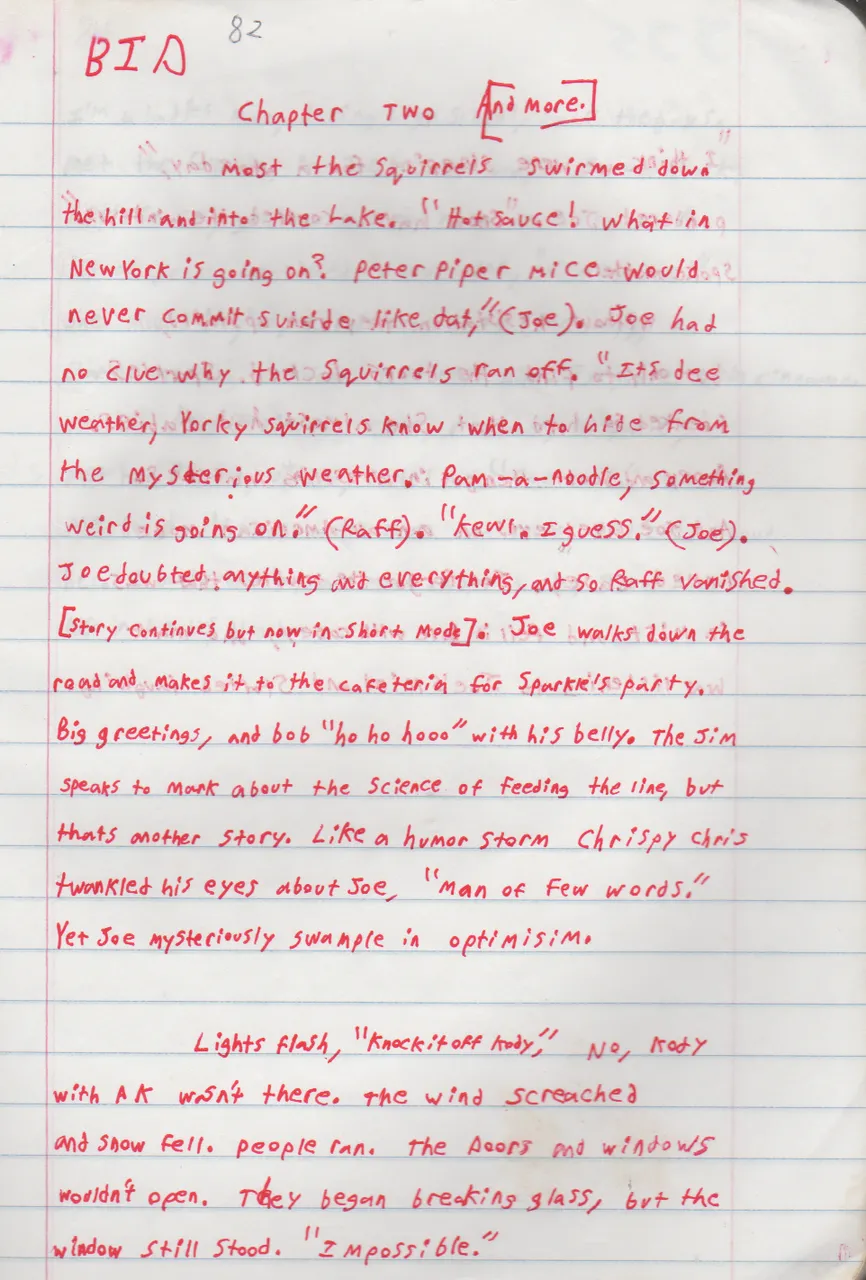 82
BIA
Chapter Two And more.
Most the squirrels swirmed down
the hill and into the Lake. "Hot sauce! What in
New York is going on? Peter Piper Mice would
never commit suicide like dat," (Joe). Joe had
no clue why the squirrels ran off. "Its dee
weather, Yorky squirrels know when to hide from
the mysterious weather. Pam-a-noodle, something
weird is going on." (Raff). "Kewl. I guess." (Joe).
Joe doubted anything and everything, and so Raff vanished.
[Story continues but now in Short Mode]: Joe walks down the
road and makes it to the cafeteria for Sparkle's party.
Big greetings, and bob "ho ho hooo" with his belly. The Jim
speaks to Mark about the science of feeding the line, but
thats another story. Like a humor storm Chrispy Chris
twankled his eyes about Joe, "Man of Few words."
Yet Joe mysteriously swample in optimisim.
Lights flash, "Knock it off Kody," No, Kody
with AK wasn't there. The wind screached
and snow fell. People ran. The Doors and windows
wouldn't open. They began breaking glass, but the
window still stood. "Impossible."